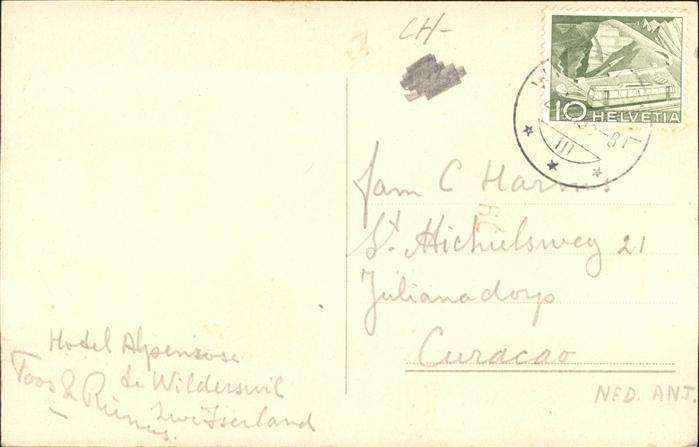 CH-
10 HELVETIA
III
Fam C Harms
St. Michielsweg 21
Julianadorp
Curacao
NED. ANT.
Hotel Alpenrose
te Wilderswil
Zwitserland
Toos & Rinus